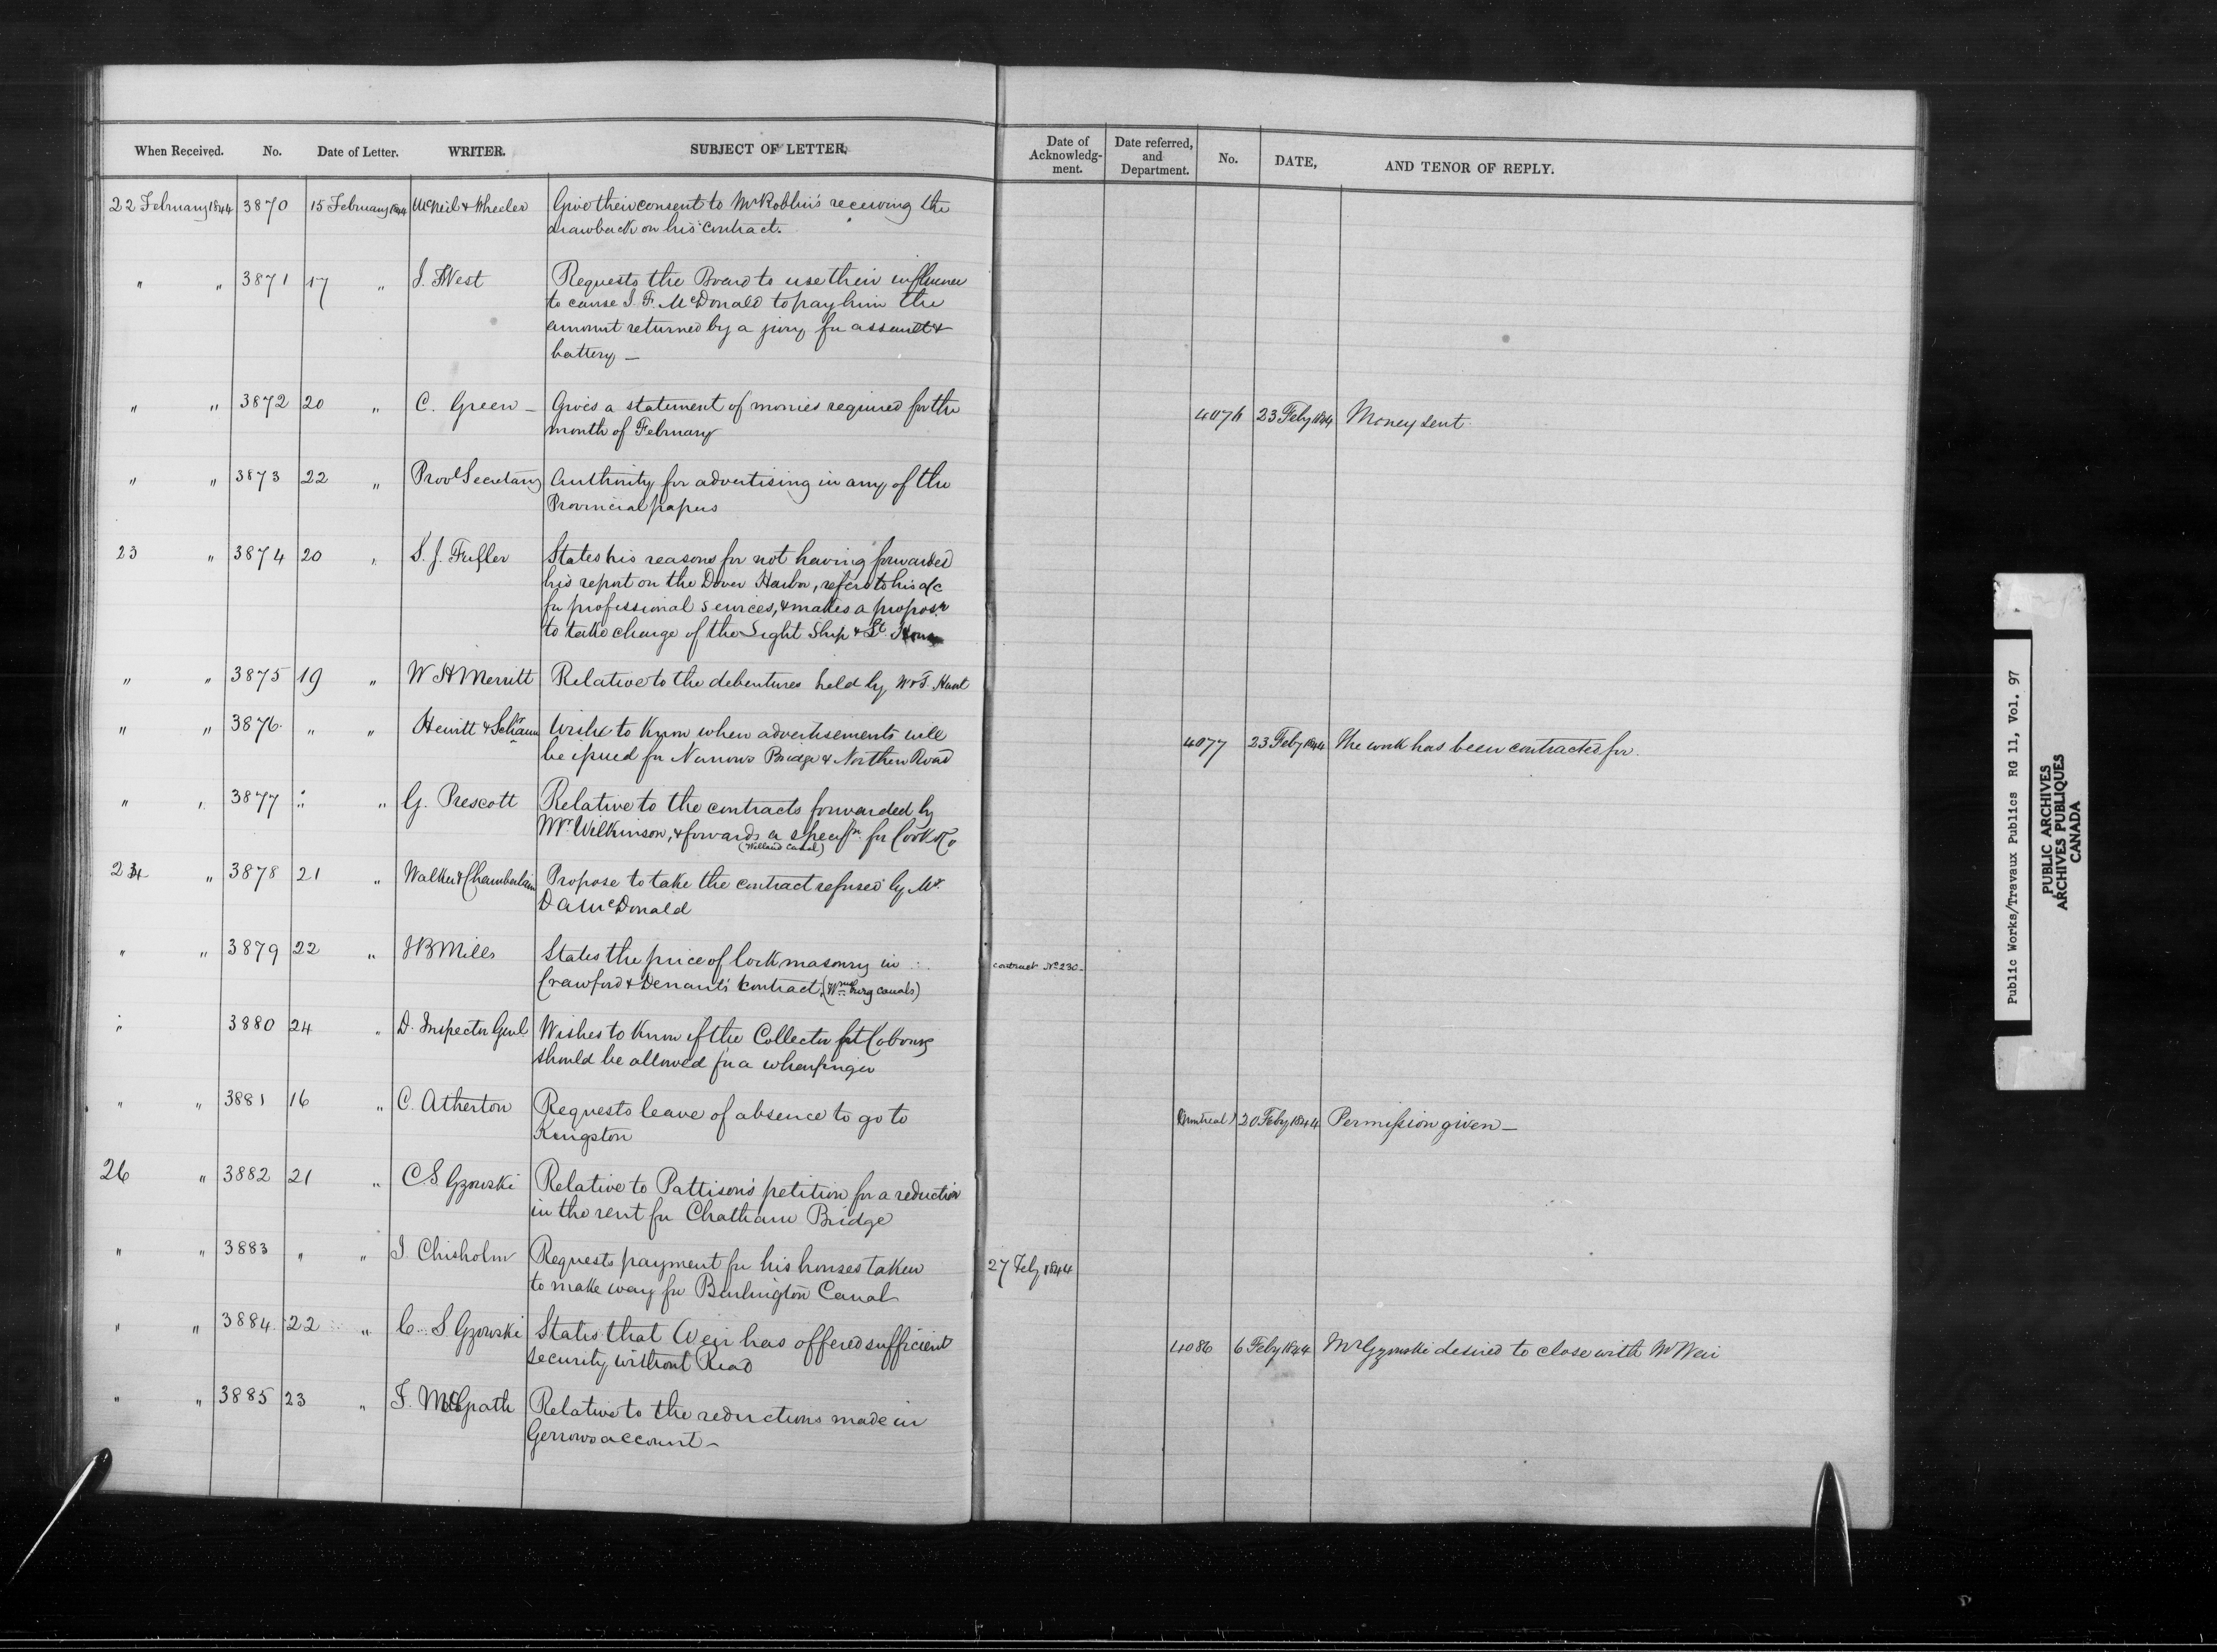 When Received. No. Date of Letter. WRITER. SUBJECT OF LETTER,
Date of Acknowledg-ment. Date referred, and Department. No. DATE, AND TENOR OF REPLY.
22 February 1844 3870 15 February 1844 McNeil & Wheeler Give their consent to Mr Roblin's receiving the
drawback on his contract.
" " 3871 17 " J. West Requests the Board to use their influence
to cause J. F. McDonald to pay him the
amount returned by a jury for assault &
battery —
" " 3872 20 " C. Green — Gives a statement of monies required for the 4076 23 Feby 1844 Money sent
month of February
" " 3873 22 " Provl Secretary Authority for advertising in any of the
Provincial papers
23 " 3874 20 " S. J. Fuller States his reasons for not having forwarded
his report on the Dover Harbor, refers to his a/c
for professional services, & makes a propos.n
to take charge of the Light Ship & Lt. House
" " 3875 19 " W H Merritt Relative to the debentures held by W & T. Hunt
" " 3876 " " Hewitt & Wishes to know when advertisements will 4077 23 Feby 1844 The work has been contracted for.
be issued for Narrows Bridge & Northern Road
" " 3877 " " G. Prescott Relative to the contracts forwarded by
Mr. Wilkinson, & forwards a specifn. for Cook & Co
(Welland Canal)
24 " 3878 21 " Walker & Chamberlain Propose to take the contract refused by Mr.
D A McDonald
" " 3879 22 " J B Mills States the price of lock masonry in contract No 230—
Crawford & contract, (Wmsburg canals)
" 3880 24 " D. Inspector Genl. Wishes to know if the Collector at Cobourg
should be allowed for a wharfinger
" " 3881 16 " C. Atherton Requests leave of absence to go to (Montreal) 20 Feby 1844 Permission given —
Kingston
26 " 3882 21 " C. S Gzowski Relative to Pattison's petition for a reduction
in the rent for Chatham Bridge
" " 3883 " " J. Chisholm Requests payment for his houses taken 27 Feby 1844
to make way for Burlington Canal
" " 3884 22 " C. S. Gzowski States that Weir has offered sufficient 4086 6 Feby 1844 Mr Gzowski desired to close with Mr Weir
security without Read
" " 3885 23 " T. McGrath Relative to the reductions made in
Gerrows account —
Public Works/Travaux Publics RG 11, Vol. 97
PUBLIC ARCHIVES
ARCHIVES PUBLIQUES
CANADA